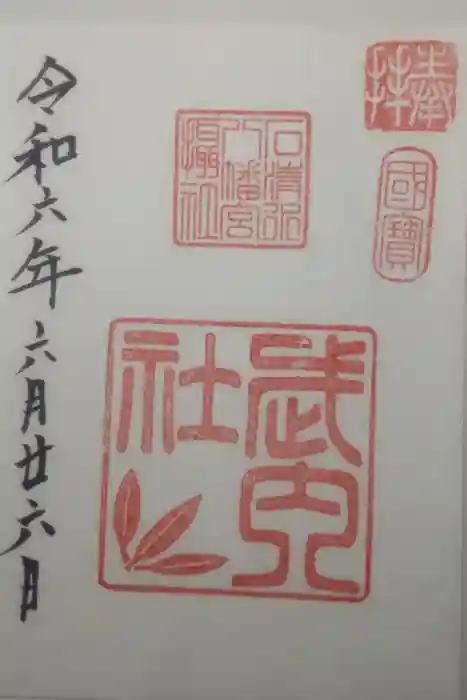 奉拝
國寳
石清水
八幡宮
攝社
武内
社
令和六年六月廿六日